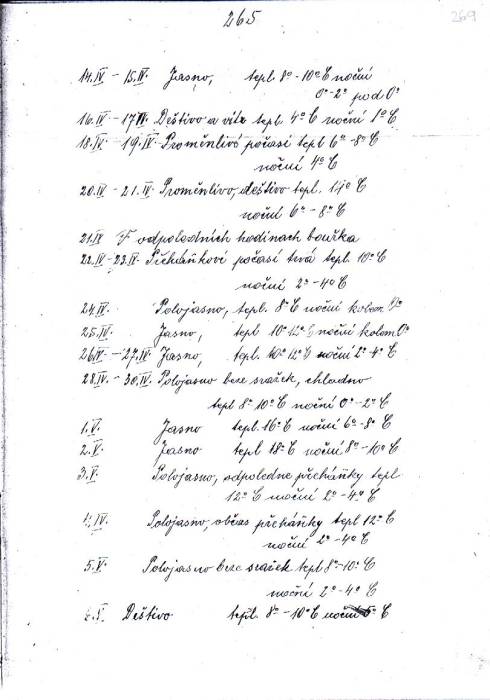 265
269
14.IV – 15.IV. Jasno, tepl. 8° – 10°C noční
0° - 2° pod 0°
16.IV – 17.IV. Deštivo a vítr tepl. 4°C noční 1°C
18.IV. – 19.IV. Proměnlivé počasí tepl 6° – 8°C
noční 4°C
20.IV – 21.IV. Proměnlivo, deštivo tepl. 14°C
noční 6° – 8°C
21.IV V odpoledních hodinach bouřka
22.IV – 23.IV. Přeháňkové počasí trvá tepl. 10°C
noční 2° – 4°C
24.IV. Polojasno, tepl. 8°C noční kolem 0°
25.IV. Jasno, tepl 10° 12°C noční kolem 0°
26.IV – 27.IV. Jasno, tepl. 10° 12°C noční 2° – 4°C
28.IV. – 30.IV. Polojasno beze srážek, chladno
tepl 8° – 10°C noční 0° – 2°C
1.V. Jasno tepl. 16°C noční 6° – 8°C
2.V. Jasno tepl 18°C noční 8° – 10°C
3.V. Polojasno, odpoledne přeháňky tepl
12°C noční 2° – 4°C
4.IV. Polojasno, občas přeháňky tepl 12°C
noční 2° – 4°C
5.V. Polojasno beze srážek tepl 8° – 10°C
noční 2° – 4°C
Deštivo tepl. 8° – 10°C noční 5°C